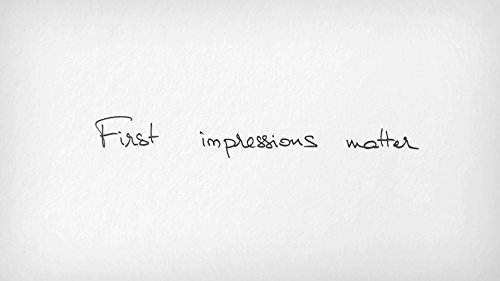 First impressions matter